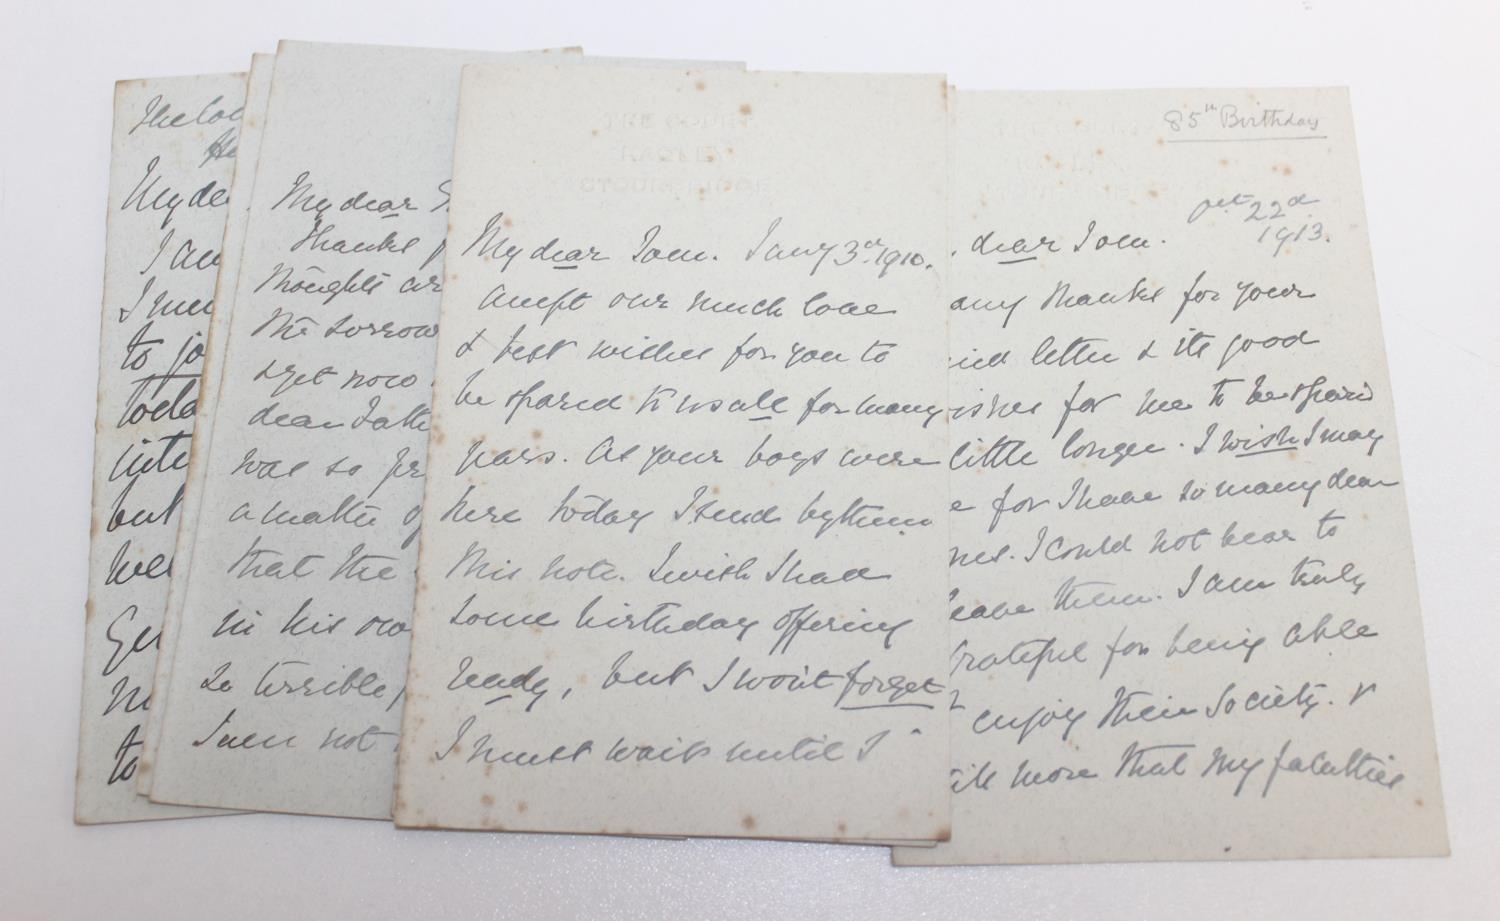 My de
I am
to jo
toda
inte
but
wel
to
My dear
Thanks
thoughts ar
the sorrow
& yet now
dear Fath
was so pr
a matter of
that the
in his ow
so terrible
I am not
My dear Tom. Jany 3rd 1910.
Accept our much love
& best wishes for you to
be spared to us all for many
years. As your boys were
here today I send by them
this note. I wish I had
some birthday offering
ready, but I won't forget
I must wait until I
85th Birthday
Oct 22d
1913.
dear Tom.
any thanks for your
ind letter & its good
ishes for me to be spared
little longer. I wish I may
e for I have so many dear
nes. I could not bear to
leave them. I am truly
grateful for being able
enjoy their Society. &
ill more that my faculties